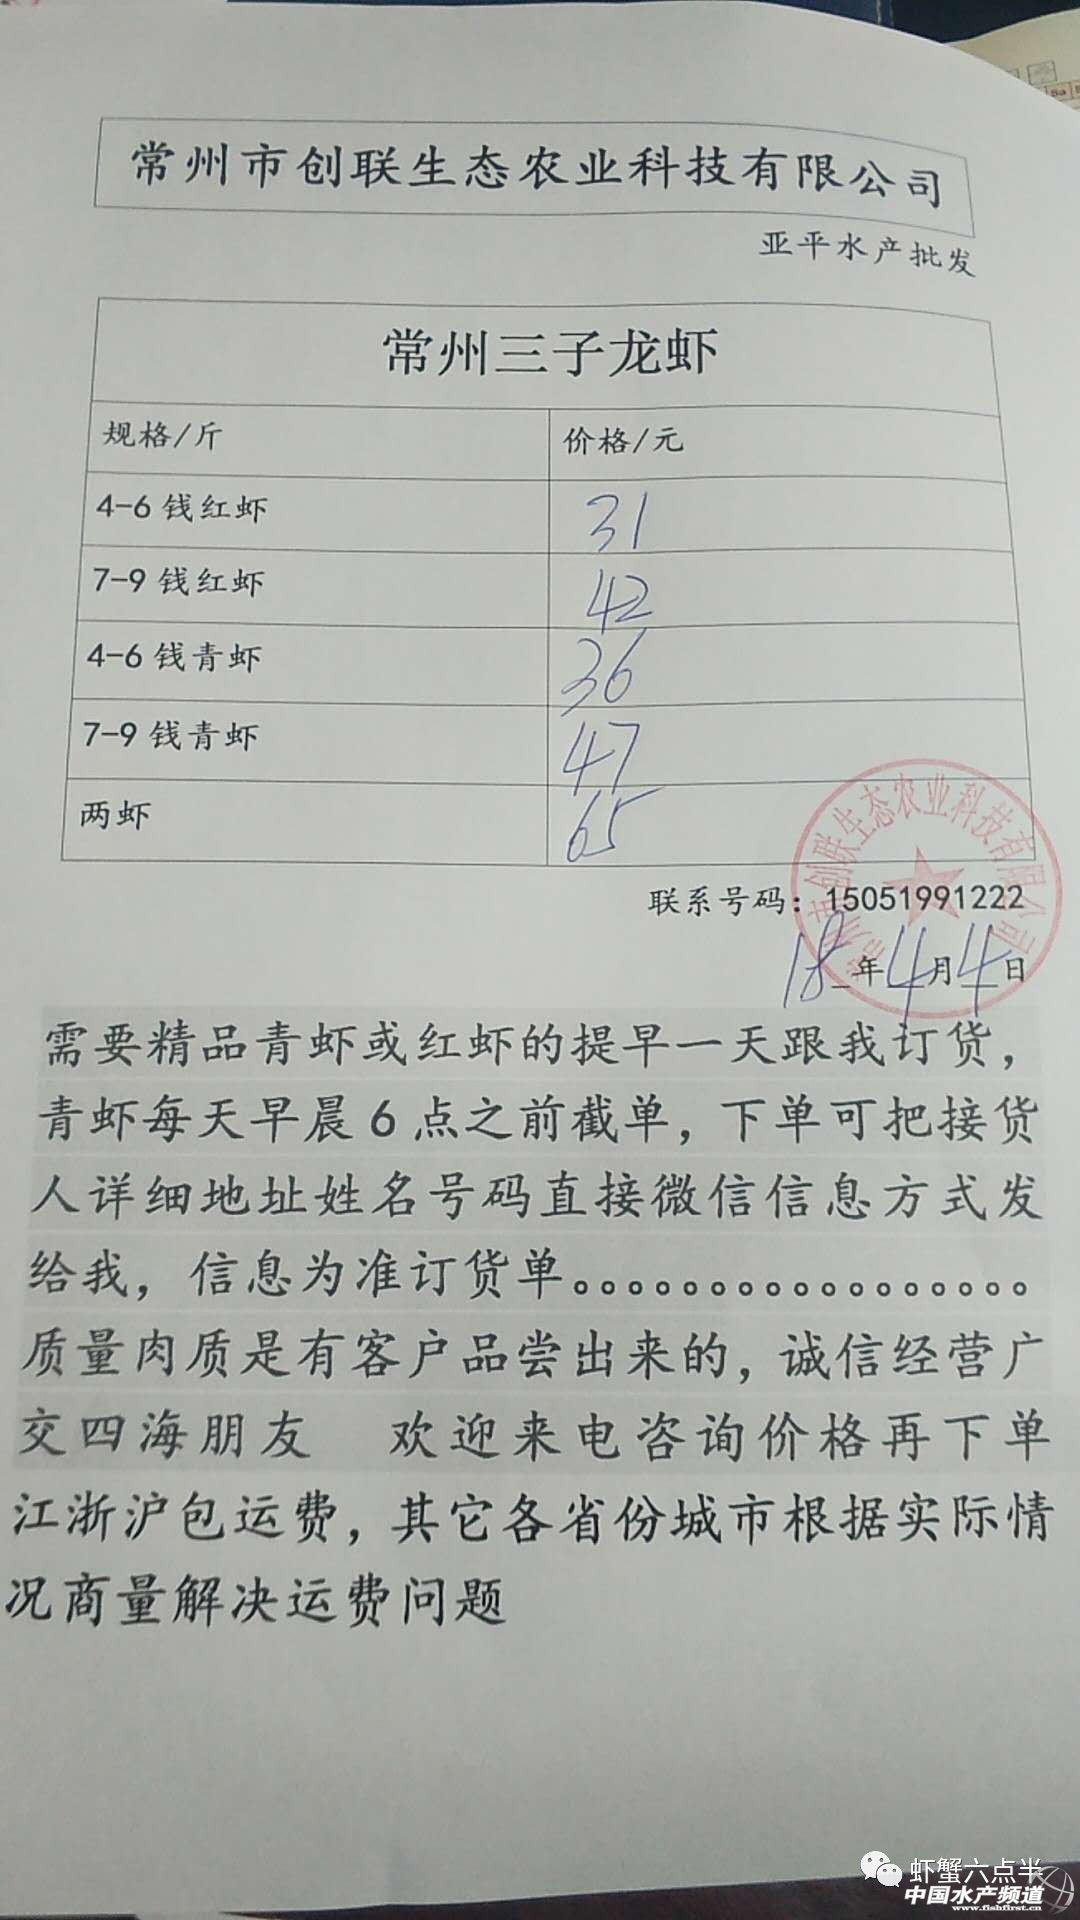 常州市创联生态农业科技有限公司
亚平水产批发
常州三子龙虾
规格/斤 价格/元
4-6 钱红虾 31
7-9 钱红虾 42
4-6 钱青虾 36
7-9 钱青虾 47
两虾 65
常州市创联生态农业科技有限公司
联系号码：15051991222
18年4月4日
需要精品青虾或红虾的提早一天跟我订货，
青虾每天早晨6点之前截单，下单可把接货
人详细地址姓名号码直接微信信息方式发
给我，信息为准订货单。。。。。。。。。。。。。。。。。
质量肉质是有客户品尝出来的，诚信经营广
交四海朋友 欢迎来电咨询价格再下单
江浙沪包运费，其它各省份城市根据实际情
况商量解决运费问题
虾蟹六点半
中国水产频道
www.fishfirst.cn